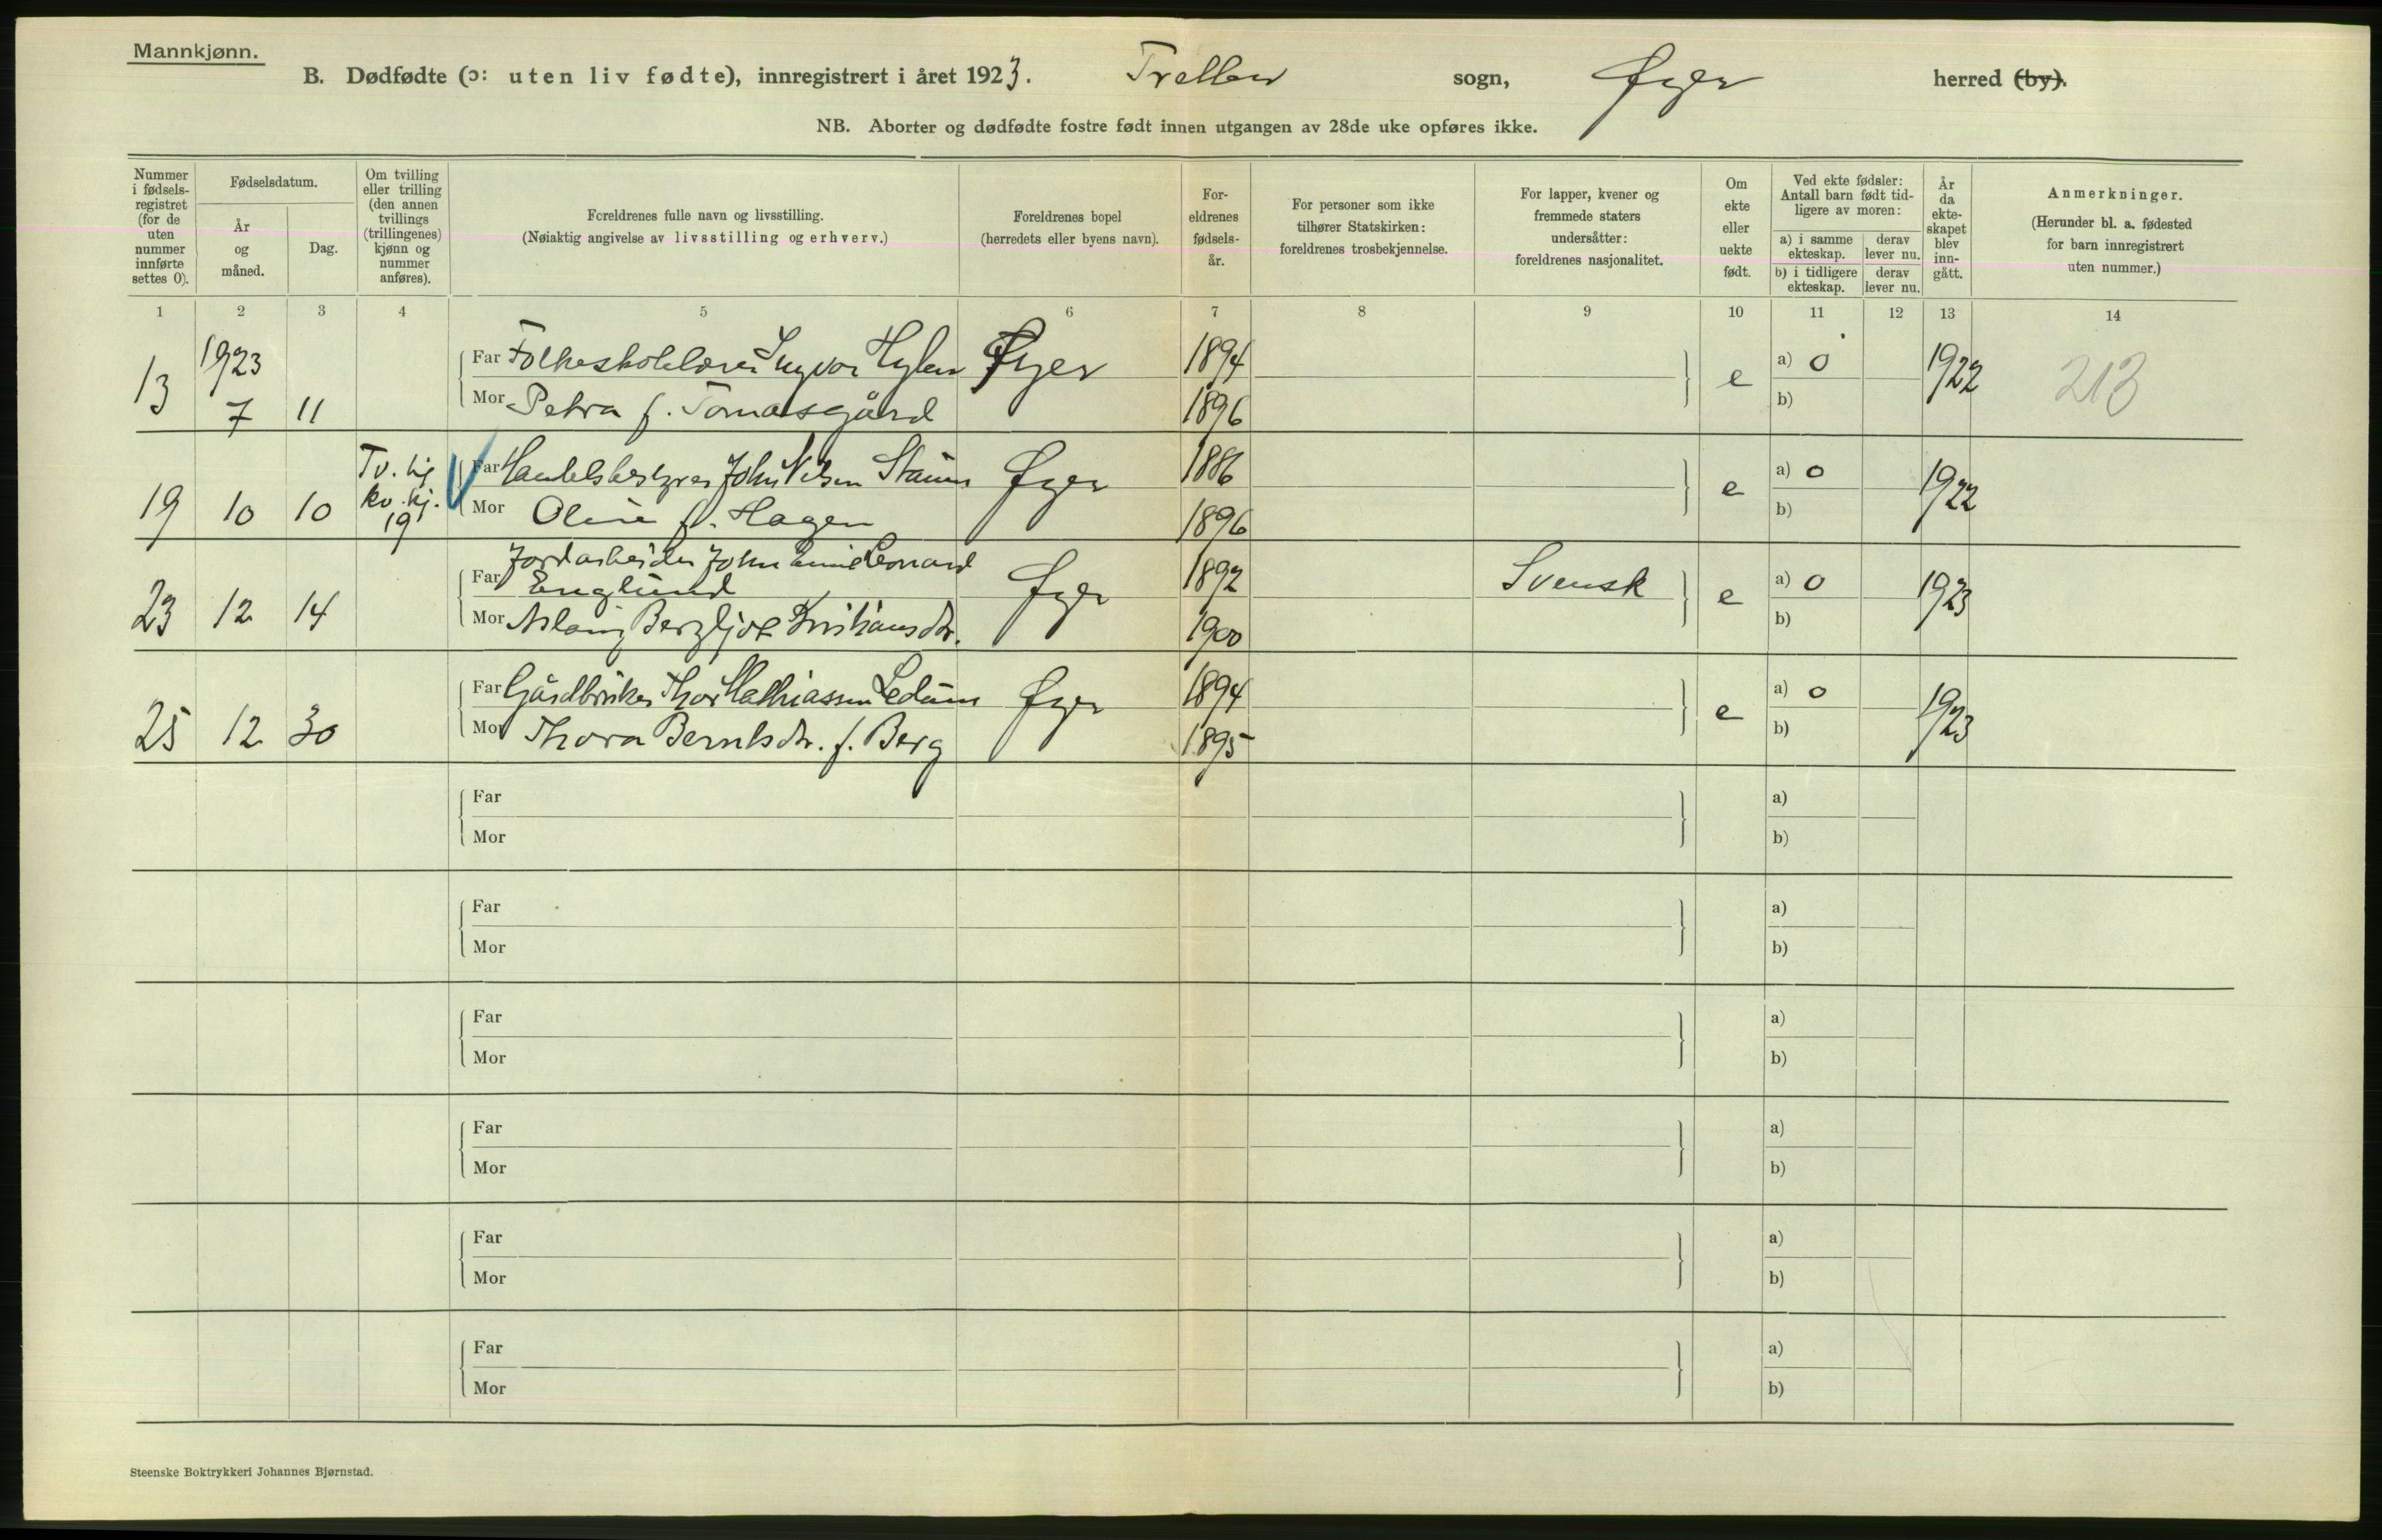 Mannkjønn.
B. Dødfødte (ɔ: uten liv fødte), innregistrert i året 1923. sogn, Øyer herred (by).
NB. Aborter og dødfødte fostre født innen utgangen av 28de uke opføres ikke.
Nummer i fødsels-registret (for de uten nummer innførte settes 0).
Fødselsdatum.
År og måned.
Dag.
Om tvilling eller trilling (den annen tvillings (trillingenes) kjønn og nummer anføres).
Foreldrenes fulle navn og livsstilling.
(Nøiaktig angivelse av livsstilling og erhverv.)
Foreldrenes bopel
(herredets eller byens navn).
For-eldrenes fødsels-år.
For personer som ikke
tilhører Statskirken:
foreldrenes trosbekjennelse.
For lapper, kvener og
fremmede staters
undersåtter:
foreldrenes nasjonalitet.
Om ekte eller uekte født.
Ved ekte fødsler:
Antall barn født tid-
ligere av moren:
a) i samme ekteskap. derav lever nu.
b) i tidligere ekteskap. derav lever nu.
År da ekte-skapet blev inn-gått.
Anmerkninger.
(Herunder bl. a. fødested
for barn innregistrert
uten nummer.)
1 2 3 4 5 6 7 8 9 10 11 12 13 14
1923
13 7 11 Far Folkeskolelærer Ingvar Hylen Øyer 1894 e a) 0 1922 213
Mor Petra f. Tomasgård 1896 b)
19 10 10 Tv. kv.kj. 19 Far John Nilsen Øyer 1886 e a) 0 1922
Mor Oline f. Hagen 1896 b)
23 12 14 Far Jordarbeider John Emil Leonard
Englund Øyer 1892 Svensk e a) 0 1923
Mor Aslaug Bergljot Kristiansdtr. 1900 b)
25 12 30 Far Gårdbruker Thor Mathiassen Ledum Øyer 1894 e a) 0 1923
Mor Thora Berntsdtr. f. Berg 1895 b)
Far a)
Mor b)
Far a)
Mor b)
Far a)
Mor b)
Far a)
Mor b)
Far a)
Mor b)
Far a)
Mor b)
Steenske Boktrykkeri Johannes Bjørnstad.